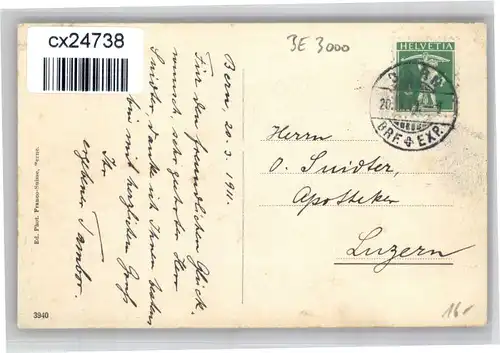 cx24738
BE 3000
HELVETIA
BRF. EXP.
Bern, 20.3.1911.
Für den freundlichen Glück-
wunsch, sehr geehrter Herr
Snidter, danke ich Ihnen bestens
mit herzlichen Gruß
Ihr
ergebener
Herrn
O. Snidter,
Apotheker
Luzern
Ed. Phot. Franco-Suisse, Berne.
3940
16.-